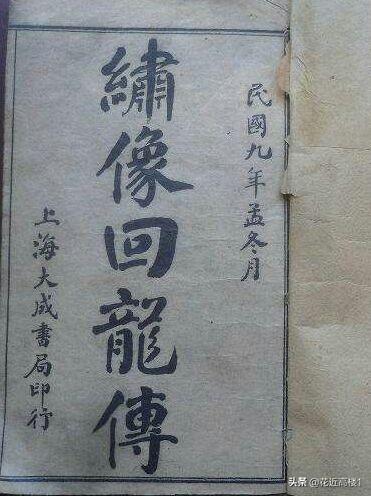 民國九年孟冬月
繡像回龍傳
上海大成書局印行
头条 @花近高楼1